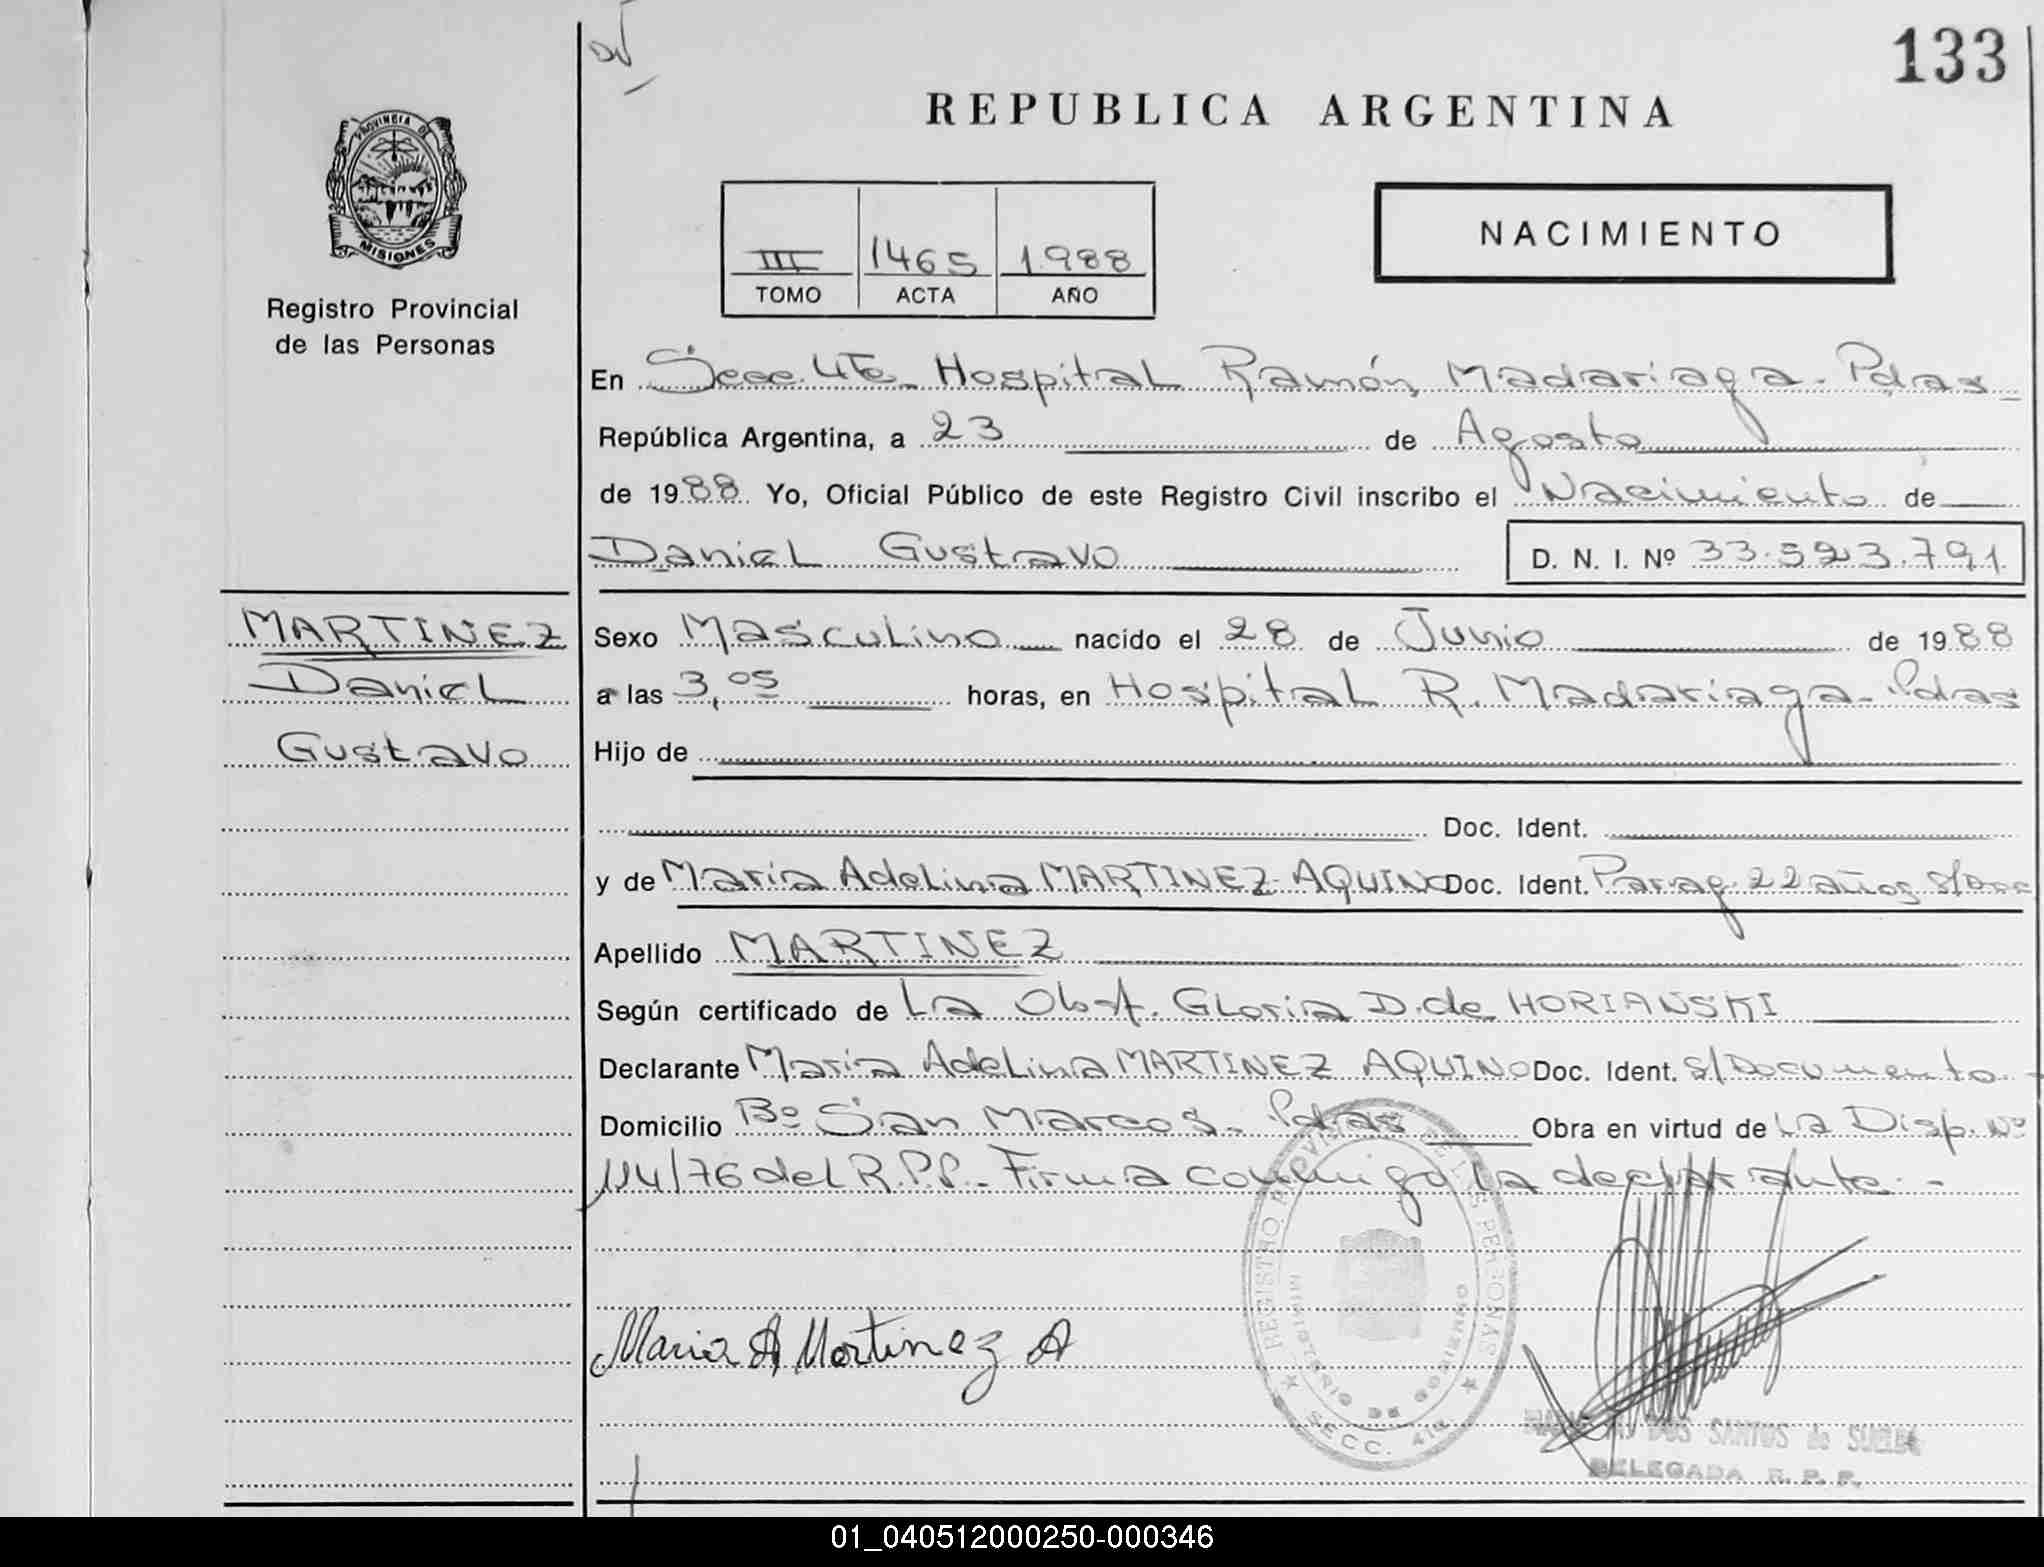 133
REPUBLICA ARGENTINA
PROVINCIA DE MISIONES
Registro Provincial
de las Personas
III 1465 1988
TOMO ACTA AÑO
NACIMIENTO
En Secc. 4ta Hospital Ramón Madariaga - Pdas
República Argentina, a 23 de Agosto
de 1988 Yo, Oficial Público de este Registro Civil inscribo el Nacimiento de
Daniel Gustavo D. N. I. Nº 33.523.791
MARTINEZ
Daniel
Gustavo
Sexo Masculino nacido el 28 de Junio de 1988
a las 3,05 horas, en Hospital R. Madariaga - Pdas
Hijo de
Doc. Ident.
y de María Adelina MARTINEZ AQUINO Doc. Ident. Parag. 22 años s/Doc
Apellido MARTINEZ
Según certificado de La Obst. Gloria D. de HORIANSKI
Declarante María Adelina MARTINEZ AQUINO Doc. Ident. s/Documento -
Domicilio Bº San Marcos - Pdas Obra en virtud de La Disp. Nº
114/76 del R.P.P. - Firma conmigo la declarante. -
REGISTRO PROVINCIAL DE LAS PERSONAS
MINISTERIO DE GOBIERNO
SECC. 4ta
Maria A Martinez A
DOS SANTOS de SUELDO
DELEGADA R. P. P.
01_040512000250-000346